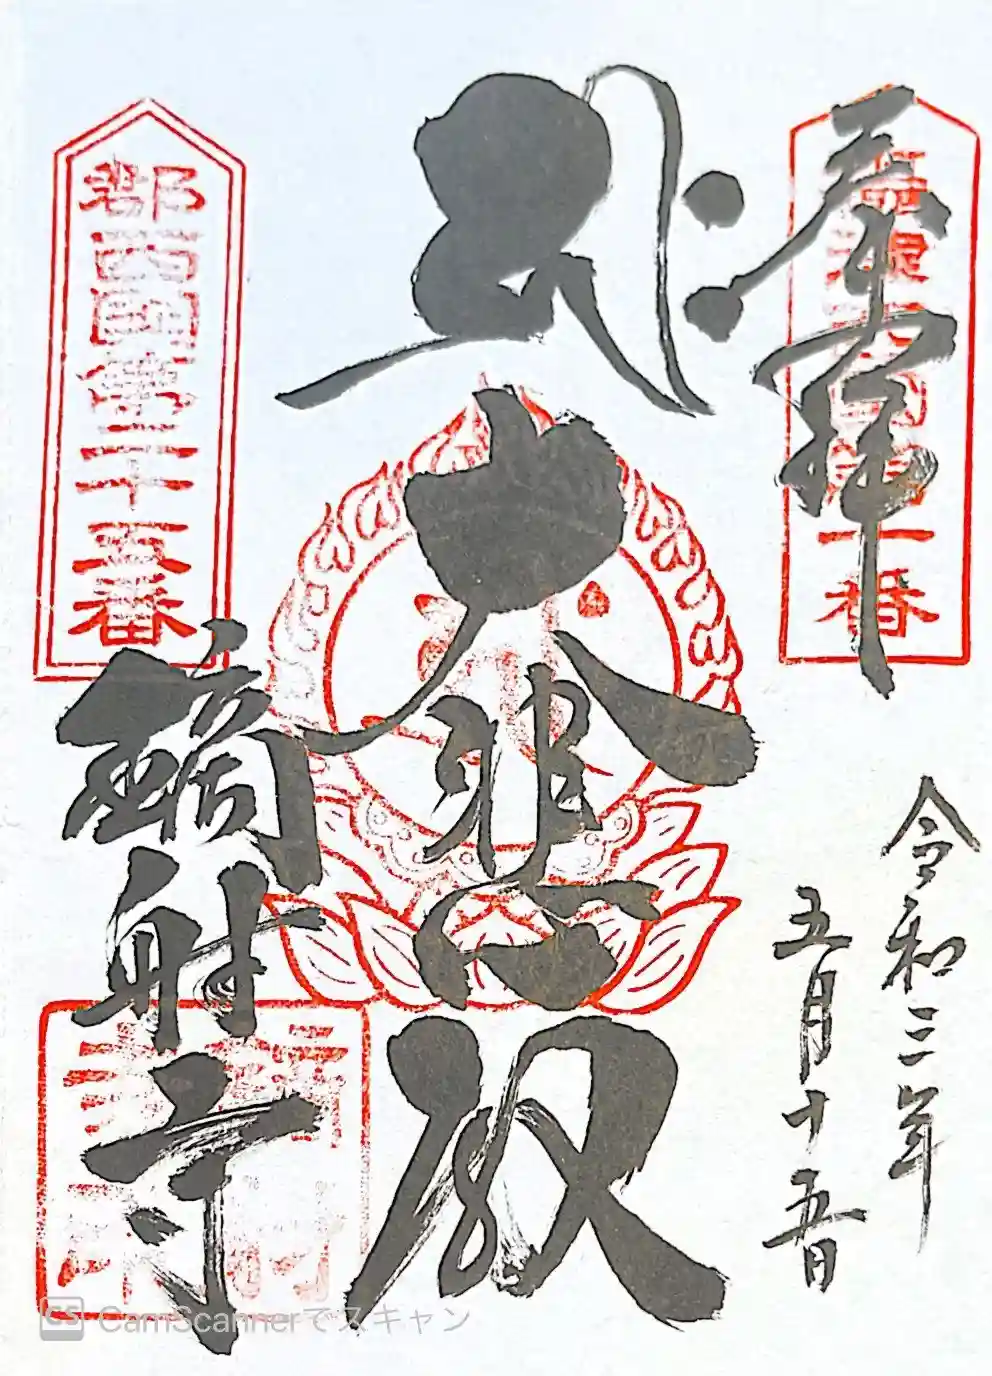 奉拝
令和三年
五月十五日
大悲殿
鏑射寺
摂津西国第一番
郡西国第二十五番
CamScannerでスキャン